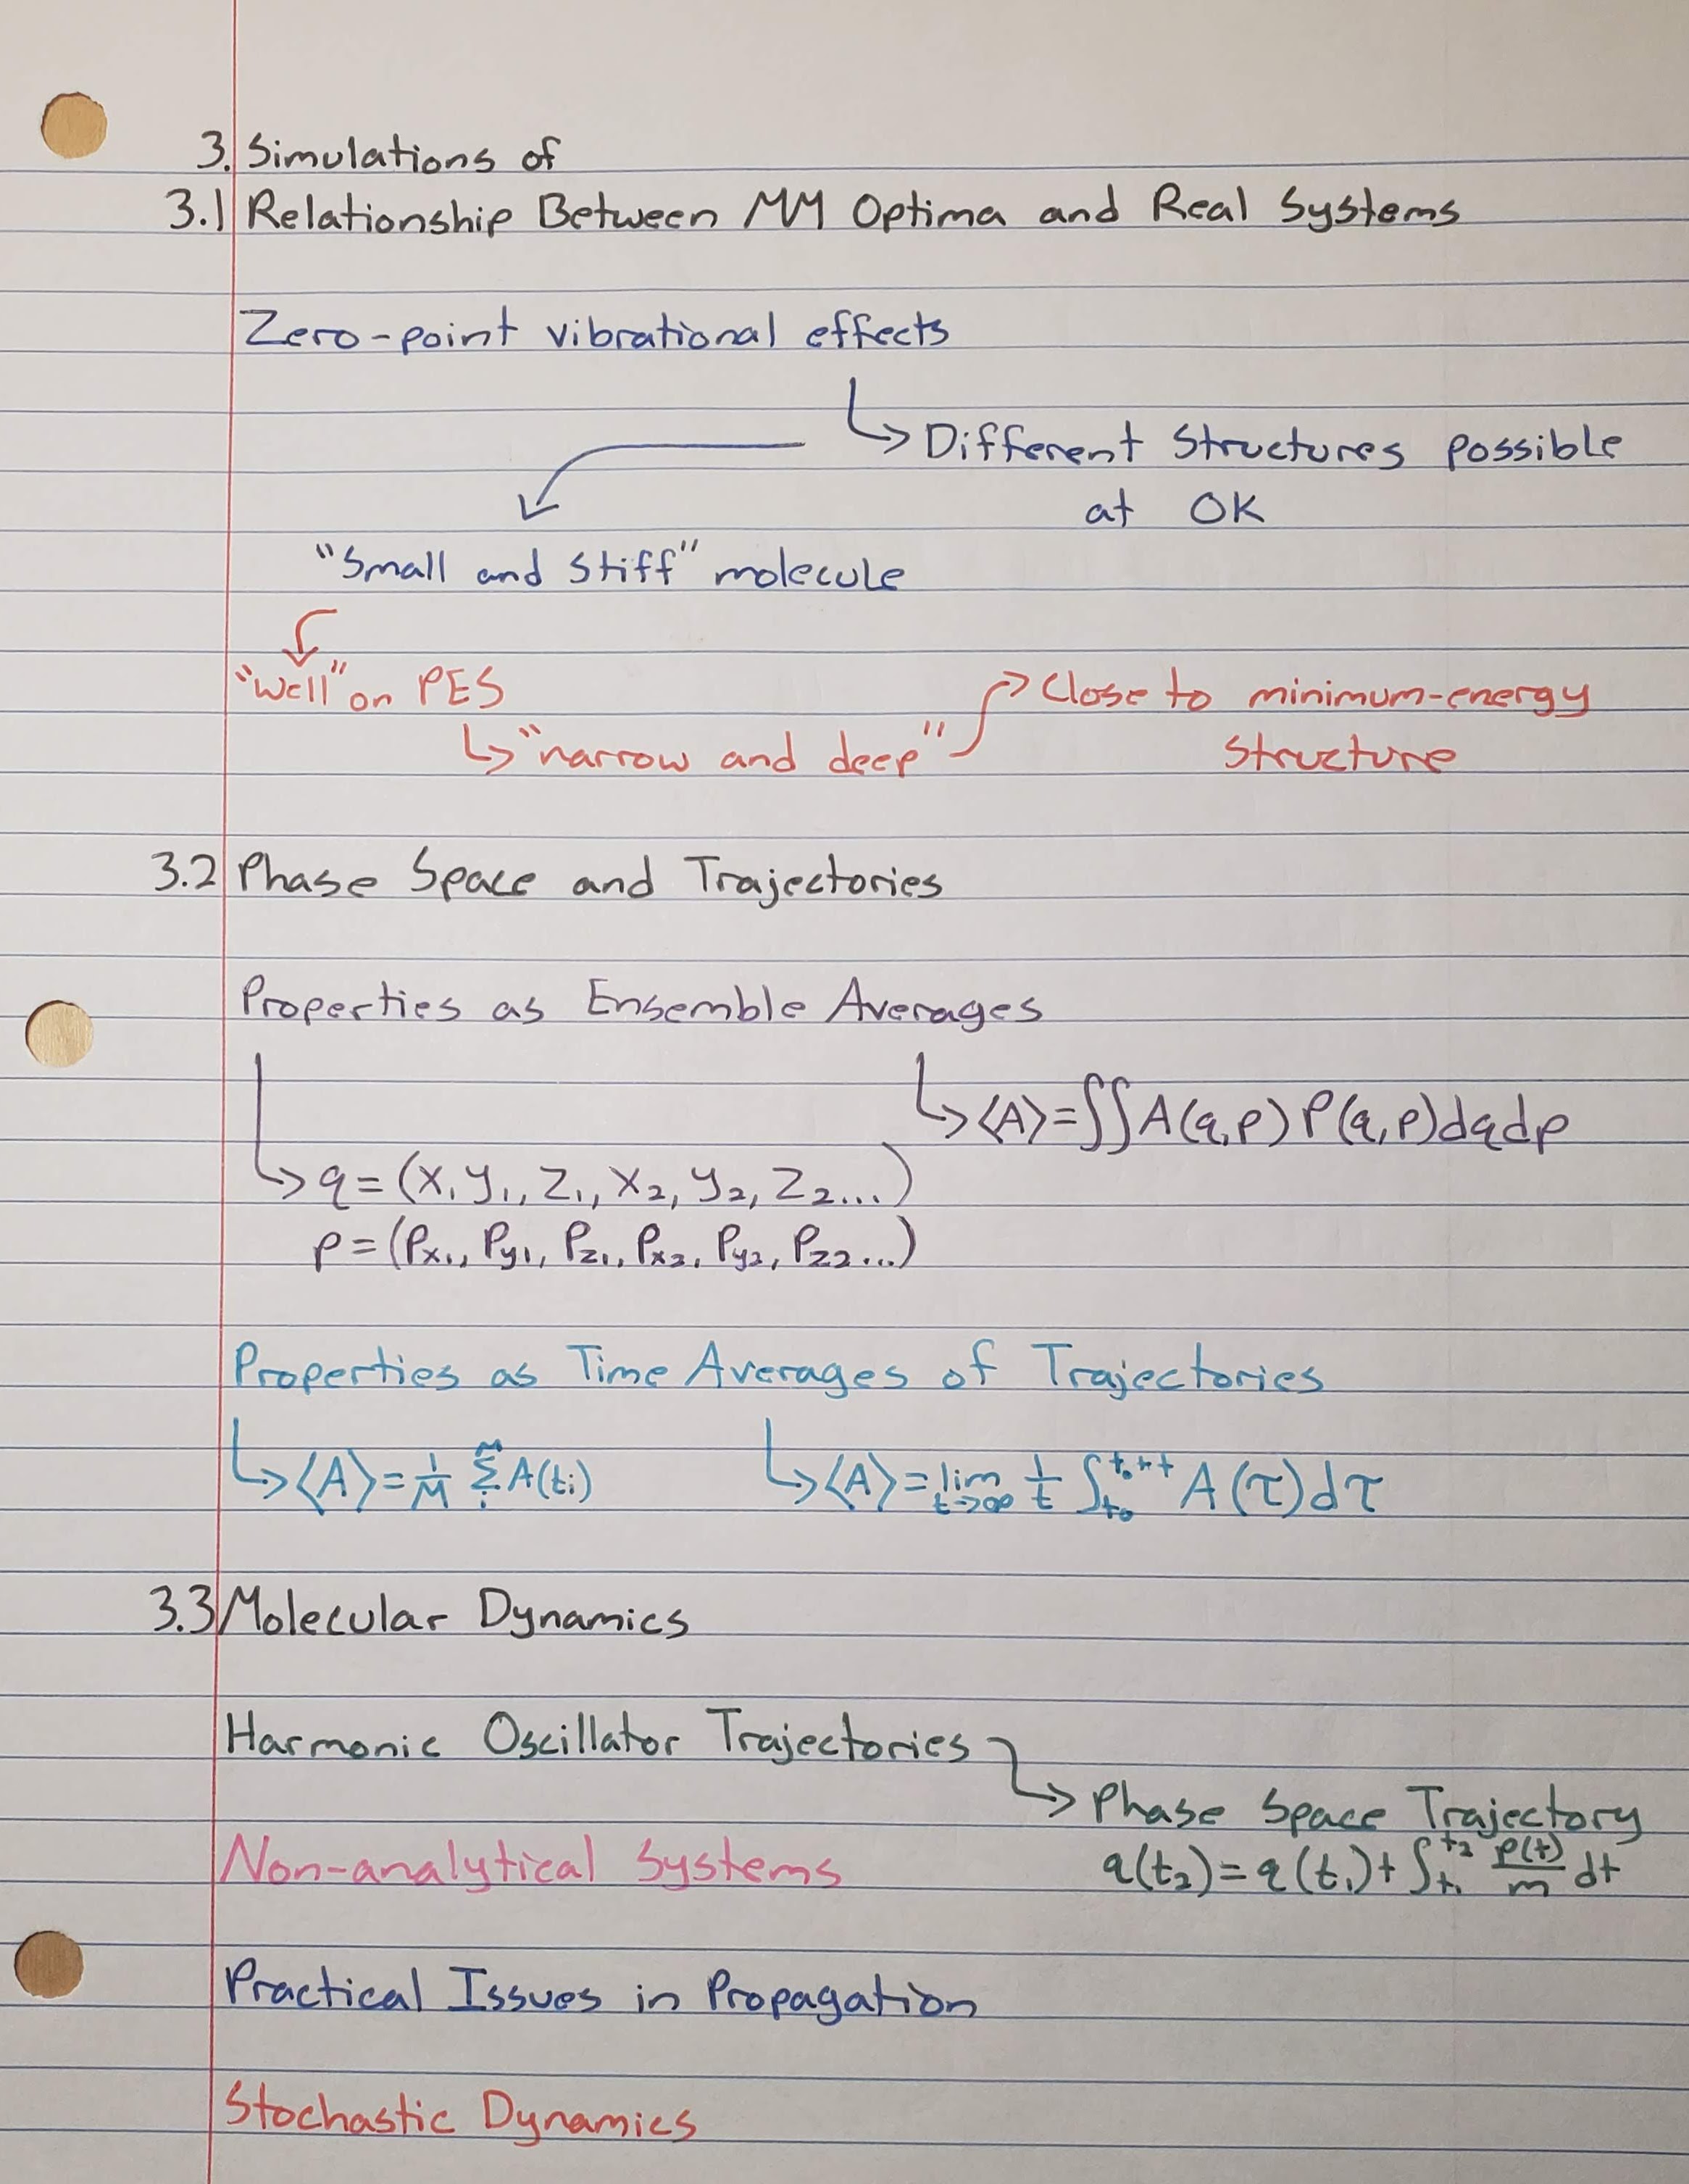 3. Simulations of
3.1 Relationship Between MM Optima and Real Systems
Zero-point vibrational effects
↳ Different Structures possible
at 0K
"Small and Stiff" molecule
"Well" on PES
↳ "narrow and deep"
→ Close to minimum-energy
Structure
3.2 Phase Space and Trajectories
Properties as Ensemble Averages
↳ ⟨A⟩=∫∫A(q,p)P(q,p)dqdp
↳ q=(x₁y₁,z₁,x₂,y₂,z₂...)
p=(Px₁,Py₁,Pz₁,Px₂,Py₂,Pz₂...)
Properties as Time Averages of Trajectories
↳ ⟨A⟩=1/M Σᵢᴹ A(tᵢ) ↳ ⟨A⟩=lim t→∞ 1/t ∫t₀^t₀+t A(τ)dτ
3.3 Molecular Dynamics
Harmonic Oscillator Trajectories
↳ Phase Space Trajectory
q(t₂)=q(t₁)+∫t₁^t₂ p(t)/m dt
Non-analytical Systems
Practical Issues in Propagation
Stochastic Dynamics